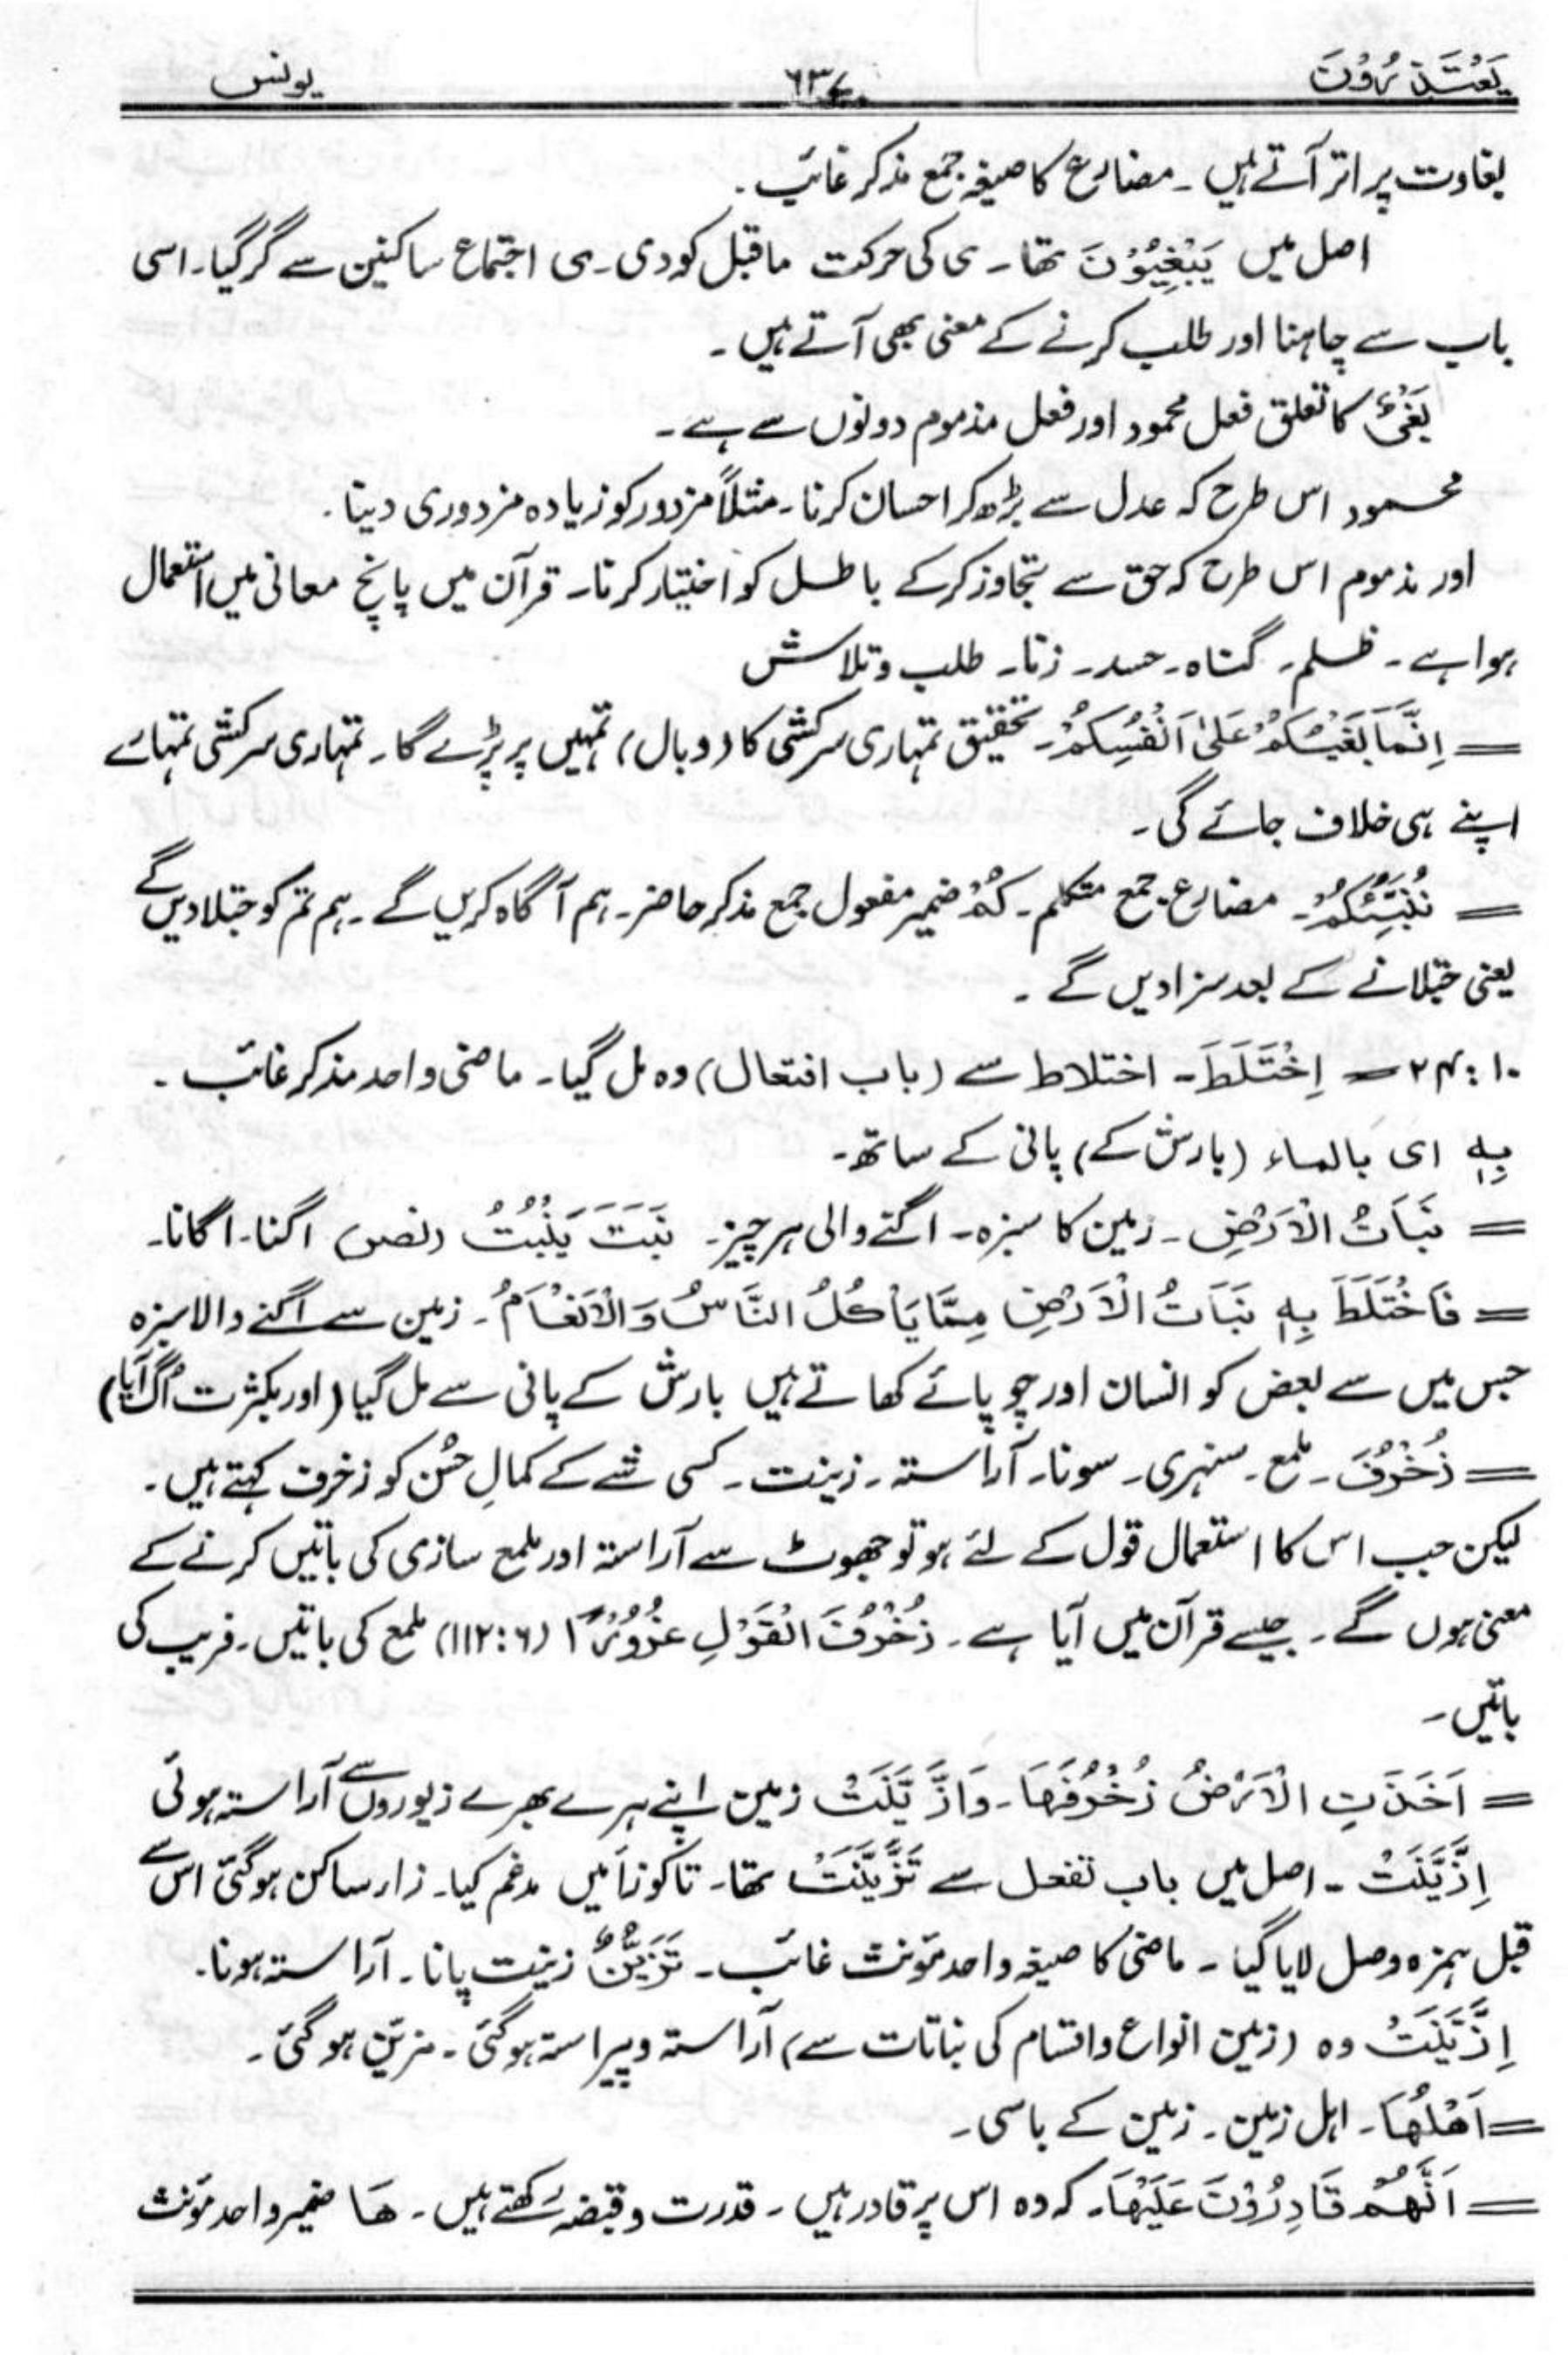 یَعْتَذِرُوْنَ ۶۳۷ یونس
بغاوت پر اتر آتے ہیں ۔ مضارع کا صیغہ جمع مذکر غائب ۔
اصل میں یَبْغِیُوْنَ تھا ۔ ی کی حرکت ماقبل کو دی ۔ ی اجتماع ساکنین سے گر گیا ۔ اسی
باب سے چاہنا اور طلب کرنے کے معنی بھی آتے ہیں ۔
بَغْیٌ کا تعلق فعل محمود اور فعل مذموم دونوں سے ہے ۔
محمود اس طرح کہ عدل سے بڑھ کر احسان کرنا ۔ مثلاً مزدور کو زیادہ مزدوری دینا ۔
اور مذموم اس طرح کہ حق سے تجاوز کرکے باطل کو اختیار کرنا ۔ قرآن میں پانچ معانی میں استعمال
ہوا ہے ۔ ظلم ۔ گناہ ۔ حسد ۔ زنا ۔ طلب و تلاش
= اِنَّمَا بَغْیُکُمْ عَلٰی اَنْفُسِکُمْ ۔ تحقیق تمہاری سرکشی کا (وبال) تمہیں پر پڑے گا ۔ تمہاری سرکشی تمہارے
اپنے ہی خلاف جائے گی ۔
= نُنَبِّئُکُمْ ۔ مضارع جمع متکلم ۔ کُمْ ضمیر مفعول جمع مذکر حاضر ۔ ہم آگاہ کریں گے ۔ ہم تم کو جتلا دیں گے
یعنی جتلانے کے بعد سزا دیں گے ۔
۱۰:۲۴ = اِخْتَلَطَ ۔ اختلاط سے (باب افتعال) وہ مل گیا ۔ ماضی واحد مذکر غائب ۔
بِہٖ ای بالماء (بارش کے) پانی کے ساتھ ۔
= نَبَاتُ الْاَرْضِ ۔ زمین کا سبزہ ۔ اگنے والی ہر چیز ۔ نَبَتَ یَنْبُتُ (نصر) اگنا ۔ اگانا ۔
= فَاخْتَلَطَ بِہٖ نَبَاتُ الْاَرْضِ مِمَّا یَاْکُلُ النَّاسُ وَالْاَنْعَامُ ۔ زمین سے اگنے والا سبزہ
جس میں سے بعض کو انسان اور چوپائے کھاتے ہیں بارش کے پانی سے مل گیا (اور بکثرت اُگ آیا)
= زُخْرُفَ ۔ ملمع ۔ سنہری ۔ سونا ۔ آراستہ ۔ زینت ۔ کسی شے کے کمالِ حُسن کو زخرف کہتے ہیں ۔
لیکن جب اس کا استعمال قول کے لئے ہو تو جھوٹ سے آراستہ اور ملمع سازی کی باتیں کرنے کے
معنی ہوں گے ۔ جیسے قرآن میں آیا ہے ۔ زُخْرُفَ الْقَوْلِ غُرُوْرًا (۶:۱۱۲) ملمع کی باتیں ۔ فریب کی
باتیں ۔
= اَخَذَتِ الْاَرْضُ زُخْرُفَہَا ۔ وَازَّیَّنَتْ زمین اپنے ہرے بھرے زیوروں سے آراستہ ہوئی
اِزَّیَّنَتْ ۔ اصل میں باب تفعل سے تَزَیَّنَتْ تھا ۔ تا کو زا میں مدغم کیا ۔ زار ساکن ہو گئی اس سے
قبل ہمزہ وصل لایا گیا ۔ ماضی کا صیغہ واحد مؤنث غائب ۔ تَزَیُّنٌ زینت پانا ۔ آراستہ ہونا ۔
اِزَّیَّنَتْ وہ (زمین انواع و اقسام کی نباتات سے) آراستہ و پیراستہ ہو گئی ۔ مزیّن ہو گئی ۔
= اَھْلُھَا ۔ اہل زمین ۔ زمین کے باسی ۔
= اَنَّھُمْ قَادِرُوْنَ عَلَیْھَا ۔ کہ وہ اس پر قادر ہیں ۔ قدرت و قبضہ رکھتے ہیں ۔ ھَا ضمیر واحد مؤنث